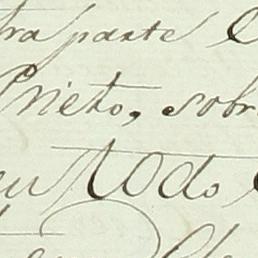 tra parte
Prieto, sobr
todo